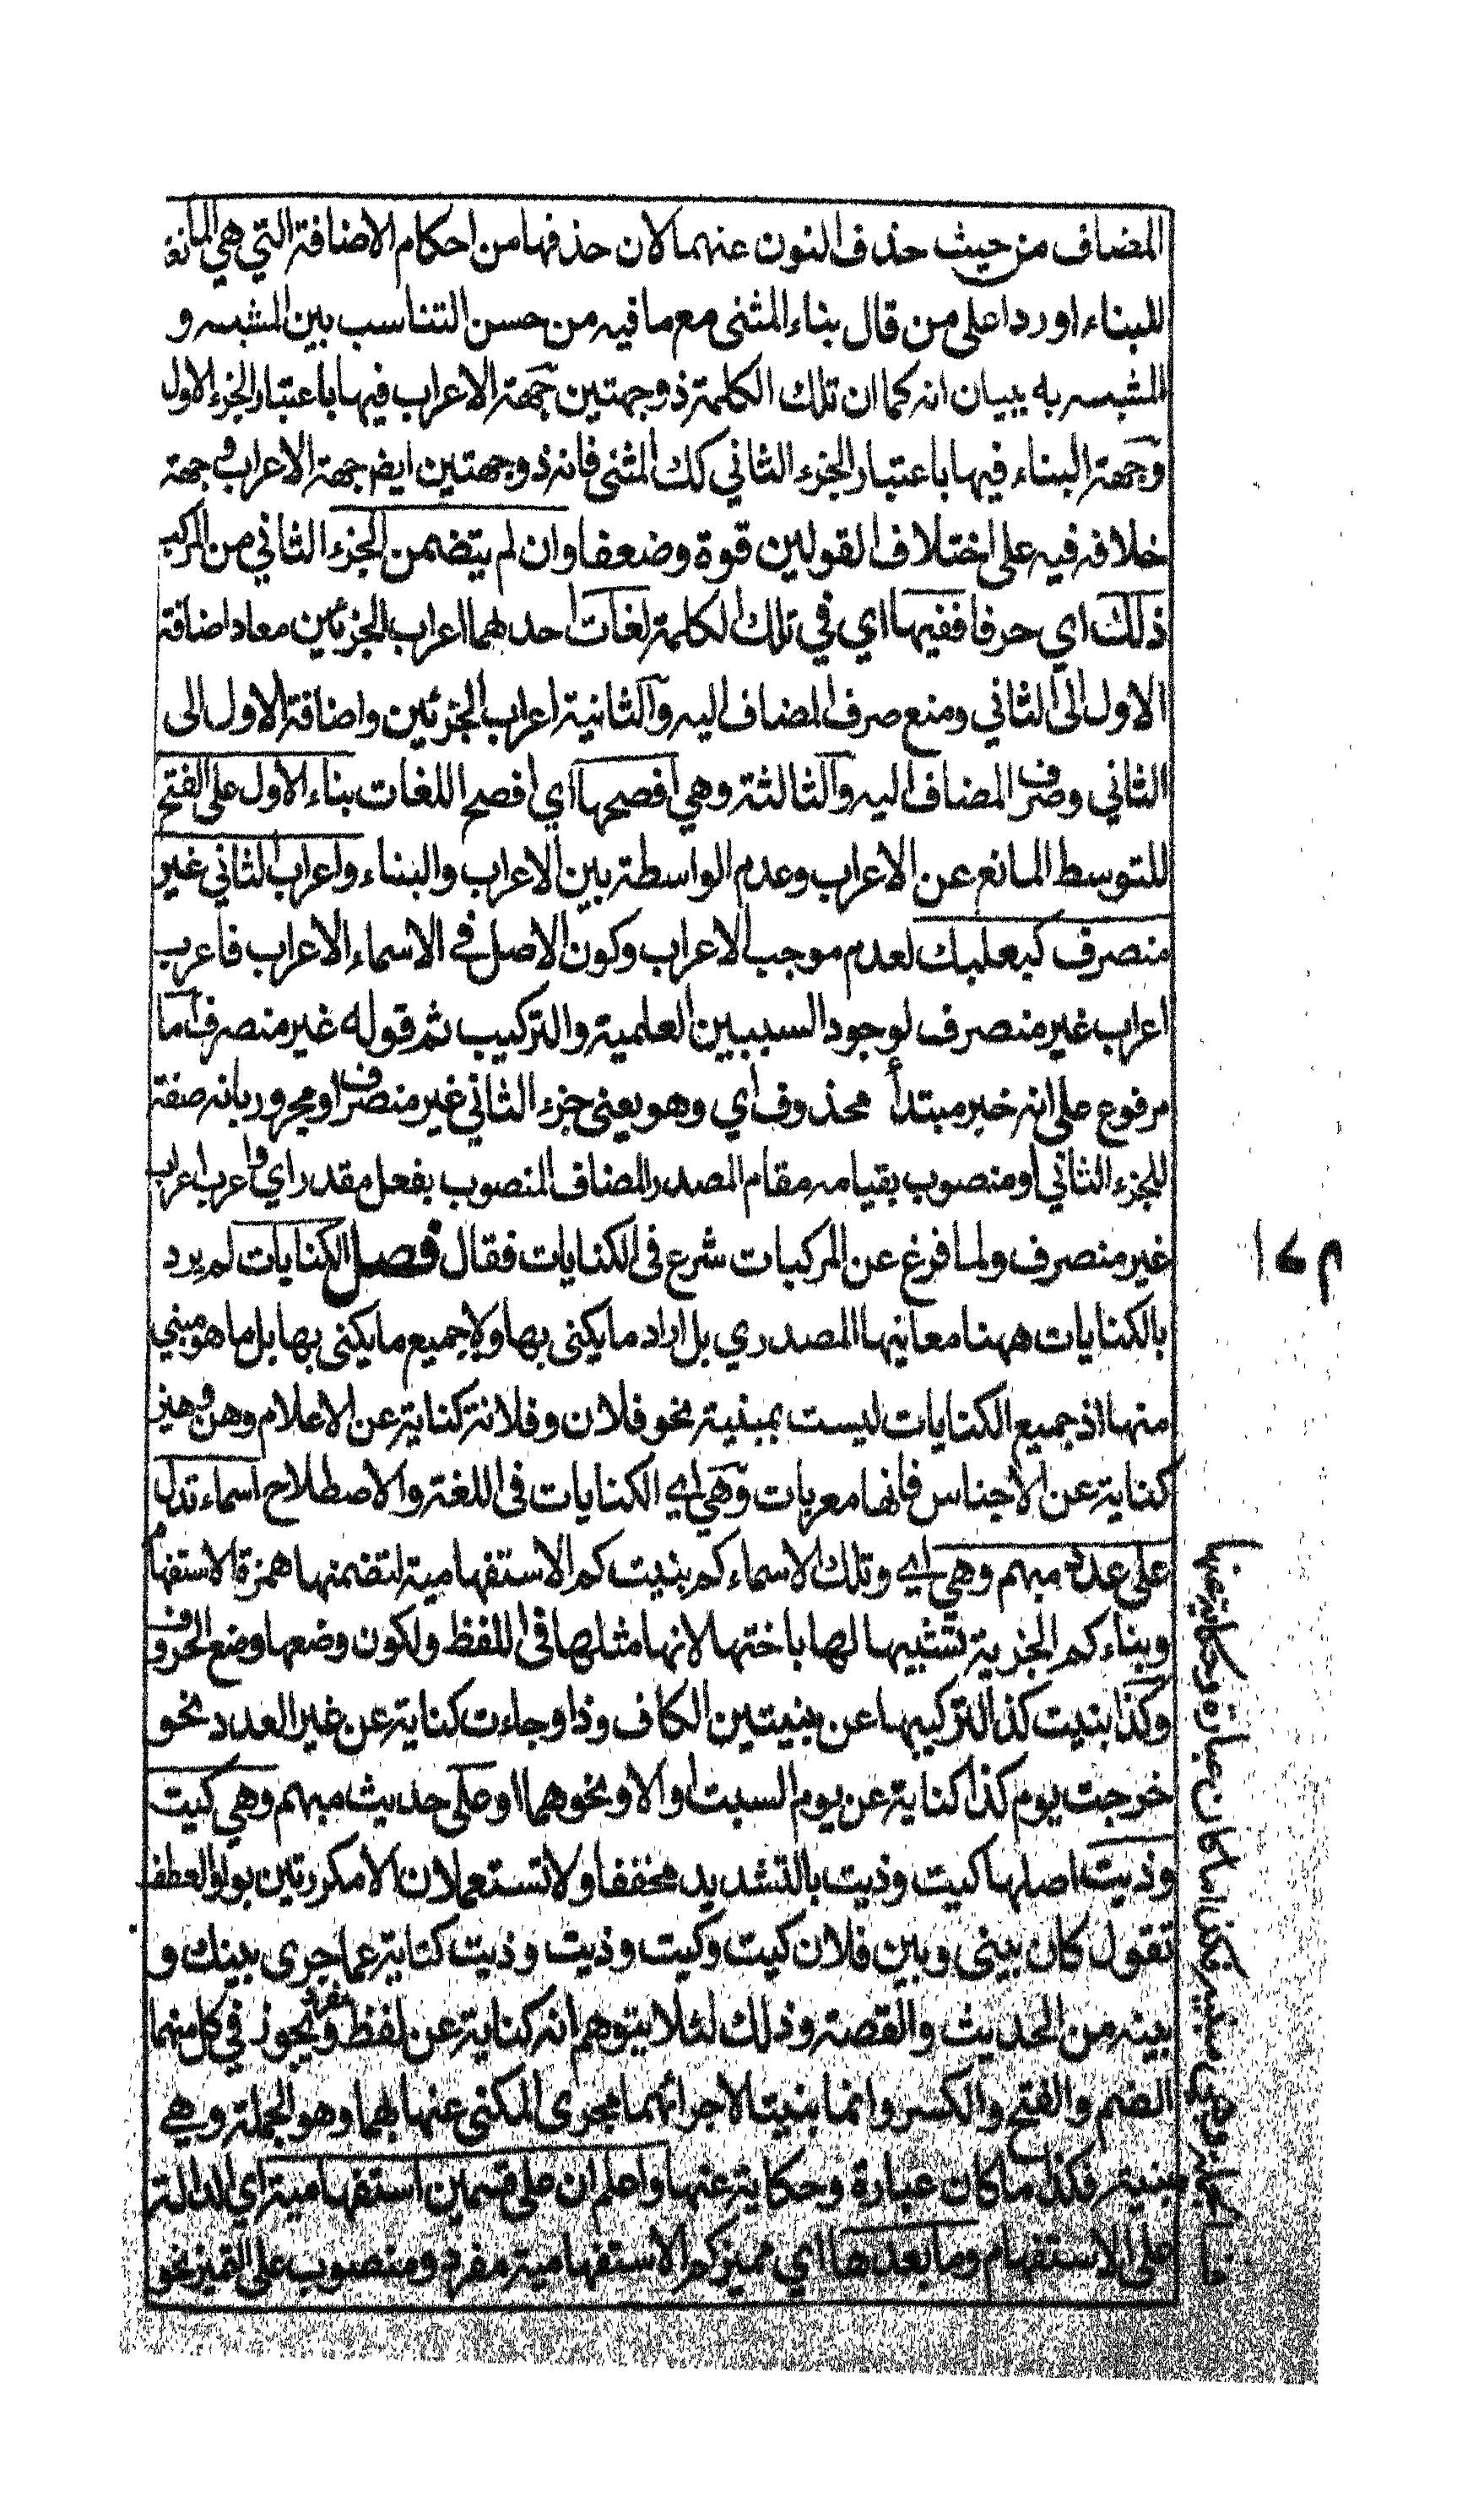 المضاف من حيث حذف النون عنهما لان حذفها من احكام الاضافة التي هي المانعة
للبناء او ردا على من قال بناء المثنى مع ما فيه من حسن التناسب بين المشبه و
المشبه به ببيان انه كما ان تلك الكلمة ذو جهتين جهة الاعراب فيها باعتبار الجزء الاول
وجهة البناء فيها باعتبار الجزء الثاني كك المثنى فانه ذو جهتين ايضا جهة الاعراب و جهة
خلافه فيه على اختلاف القولين قوة وضعفا وان لم يتضمن الجزء الثاني من المركب
ذلك اي حرفا ففيها اي في تلك الكلمة لغات احدهما اعراب الجزئين معا و اضافة
الاول الى الثاني ومنع صرف المضاف اليه والثانية اعراب الجزئين واضافة الاول الى
الثاني وصرف المضاف اليه والثالثة وهي افصحها اي افصح اللغات بناء الاول على الفتح
للتوسط المانع عن الاعراب وعدم الواسطة بين الاعراب والبناء واعراب الثاني غير
منصرف كبعلبك لعدم موجب الاعراب وكون الاصل في الاسماء الاعراب فاعرب
اعراب غير منصرف لوجود السببين العلمية والتركيب ثم قوله غير منصرف اما
مرفوع على انه خبر مبتدأ محذوف اي وهو يعنى جزء الثاني غير منصرف او مجرور بانه صفة
للجزء الثاني او منصوب بقيامه مقام المصدر المضاف المنصوب بفعل مقدر اي واعرب اعراب
غير منصرف ولما فرغ عن المركبات شرع فى الكنايات فقال فصل الكنايات لم يرد
بالكنايات ههنا معانيها المصدري بل اراد ما يكنى بها ولا جميع ما يكنى بها بل ما هو مبني
منها اذ جميع الكنايات ليست بمبنية نحو فلان و فلانة كناية عن الاعلام وهن و هنة
كناية عن الاجناس فانها معربات وهي اي الكنايات فى اللغة والاصطلاح اسماء تدل
على عدد مبهم وهي اي وتلك الاسماء كم بنيت كم الاستفهامية لتضمنها همزة الاستفهام
وبناء كم الخبرية تشبيها لها باختها لانها مثلها فى اللفظ ولكون وضعها وضع الحروف
وكذا بنيت كذا لتركيبها عن بنيتين الكاف وذا وجاءت كناية عن غير العدد نحو
خرجت يوم كذا كناية عن يوم السبت او الاحد ونحوهما او على حديث مبهم وهي كيت
وذيت اصلهما كيت وذيت بالتشديد مخففا ولا تستعملان الا مكررتين بواو العطف
تقول كان بينى وبين فلان كيت وكيت وذيت وذيت كناية عما جرى بينك و
بينه من الحديث والقصة وذلك لئلا يتوهم انه كناية عن لفظ مفرد ويجوز في كل منهما
الضم والفتح والكسر وانما بنيتا لاجرائهما مجرى المكنى عنها بهما وهو الجملة وهي
مبنية فكذا ما كان عبارة وحكاية عنها واعلم ان على قسمين استفهامية اي الدالة
على الاستفهام وما بعدها اي مميز كم الاستفهامية مفرد ومنصوب على التميز نحو